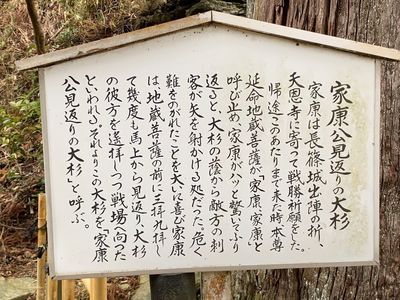 家康公見返りの大杉
家康は長篠城出陣の折、
天恩寺に寄って戦勝祈願をした。
帰途このあたりまで来た時本尊
延命地蔵菩薩が「家康、家康」と
呼び止め家康がハッと驚いてふり
返ると、大杉の蔭から敵方の刺
客が矢を射かける処だった。危く
難をのがれたことを大いに喜び家康
は地蔵菩薩の前に三拝九拝し
て幾度も馬上から見返り大杉
の彼方を遙拝しつつ戦場へ向った
といわれる。それよりこの大杉を「家康
公見返りの大杉」と呼ぶ。